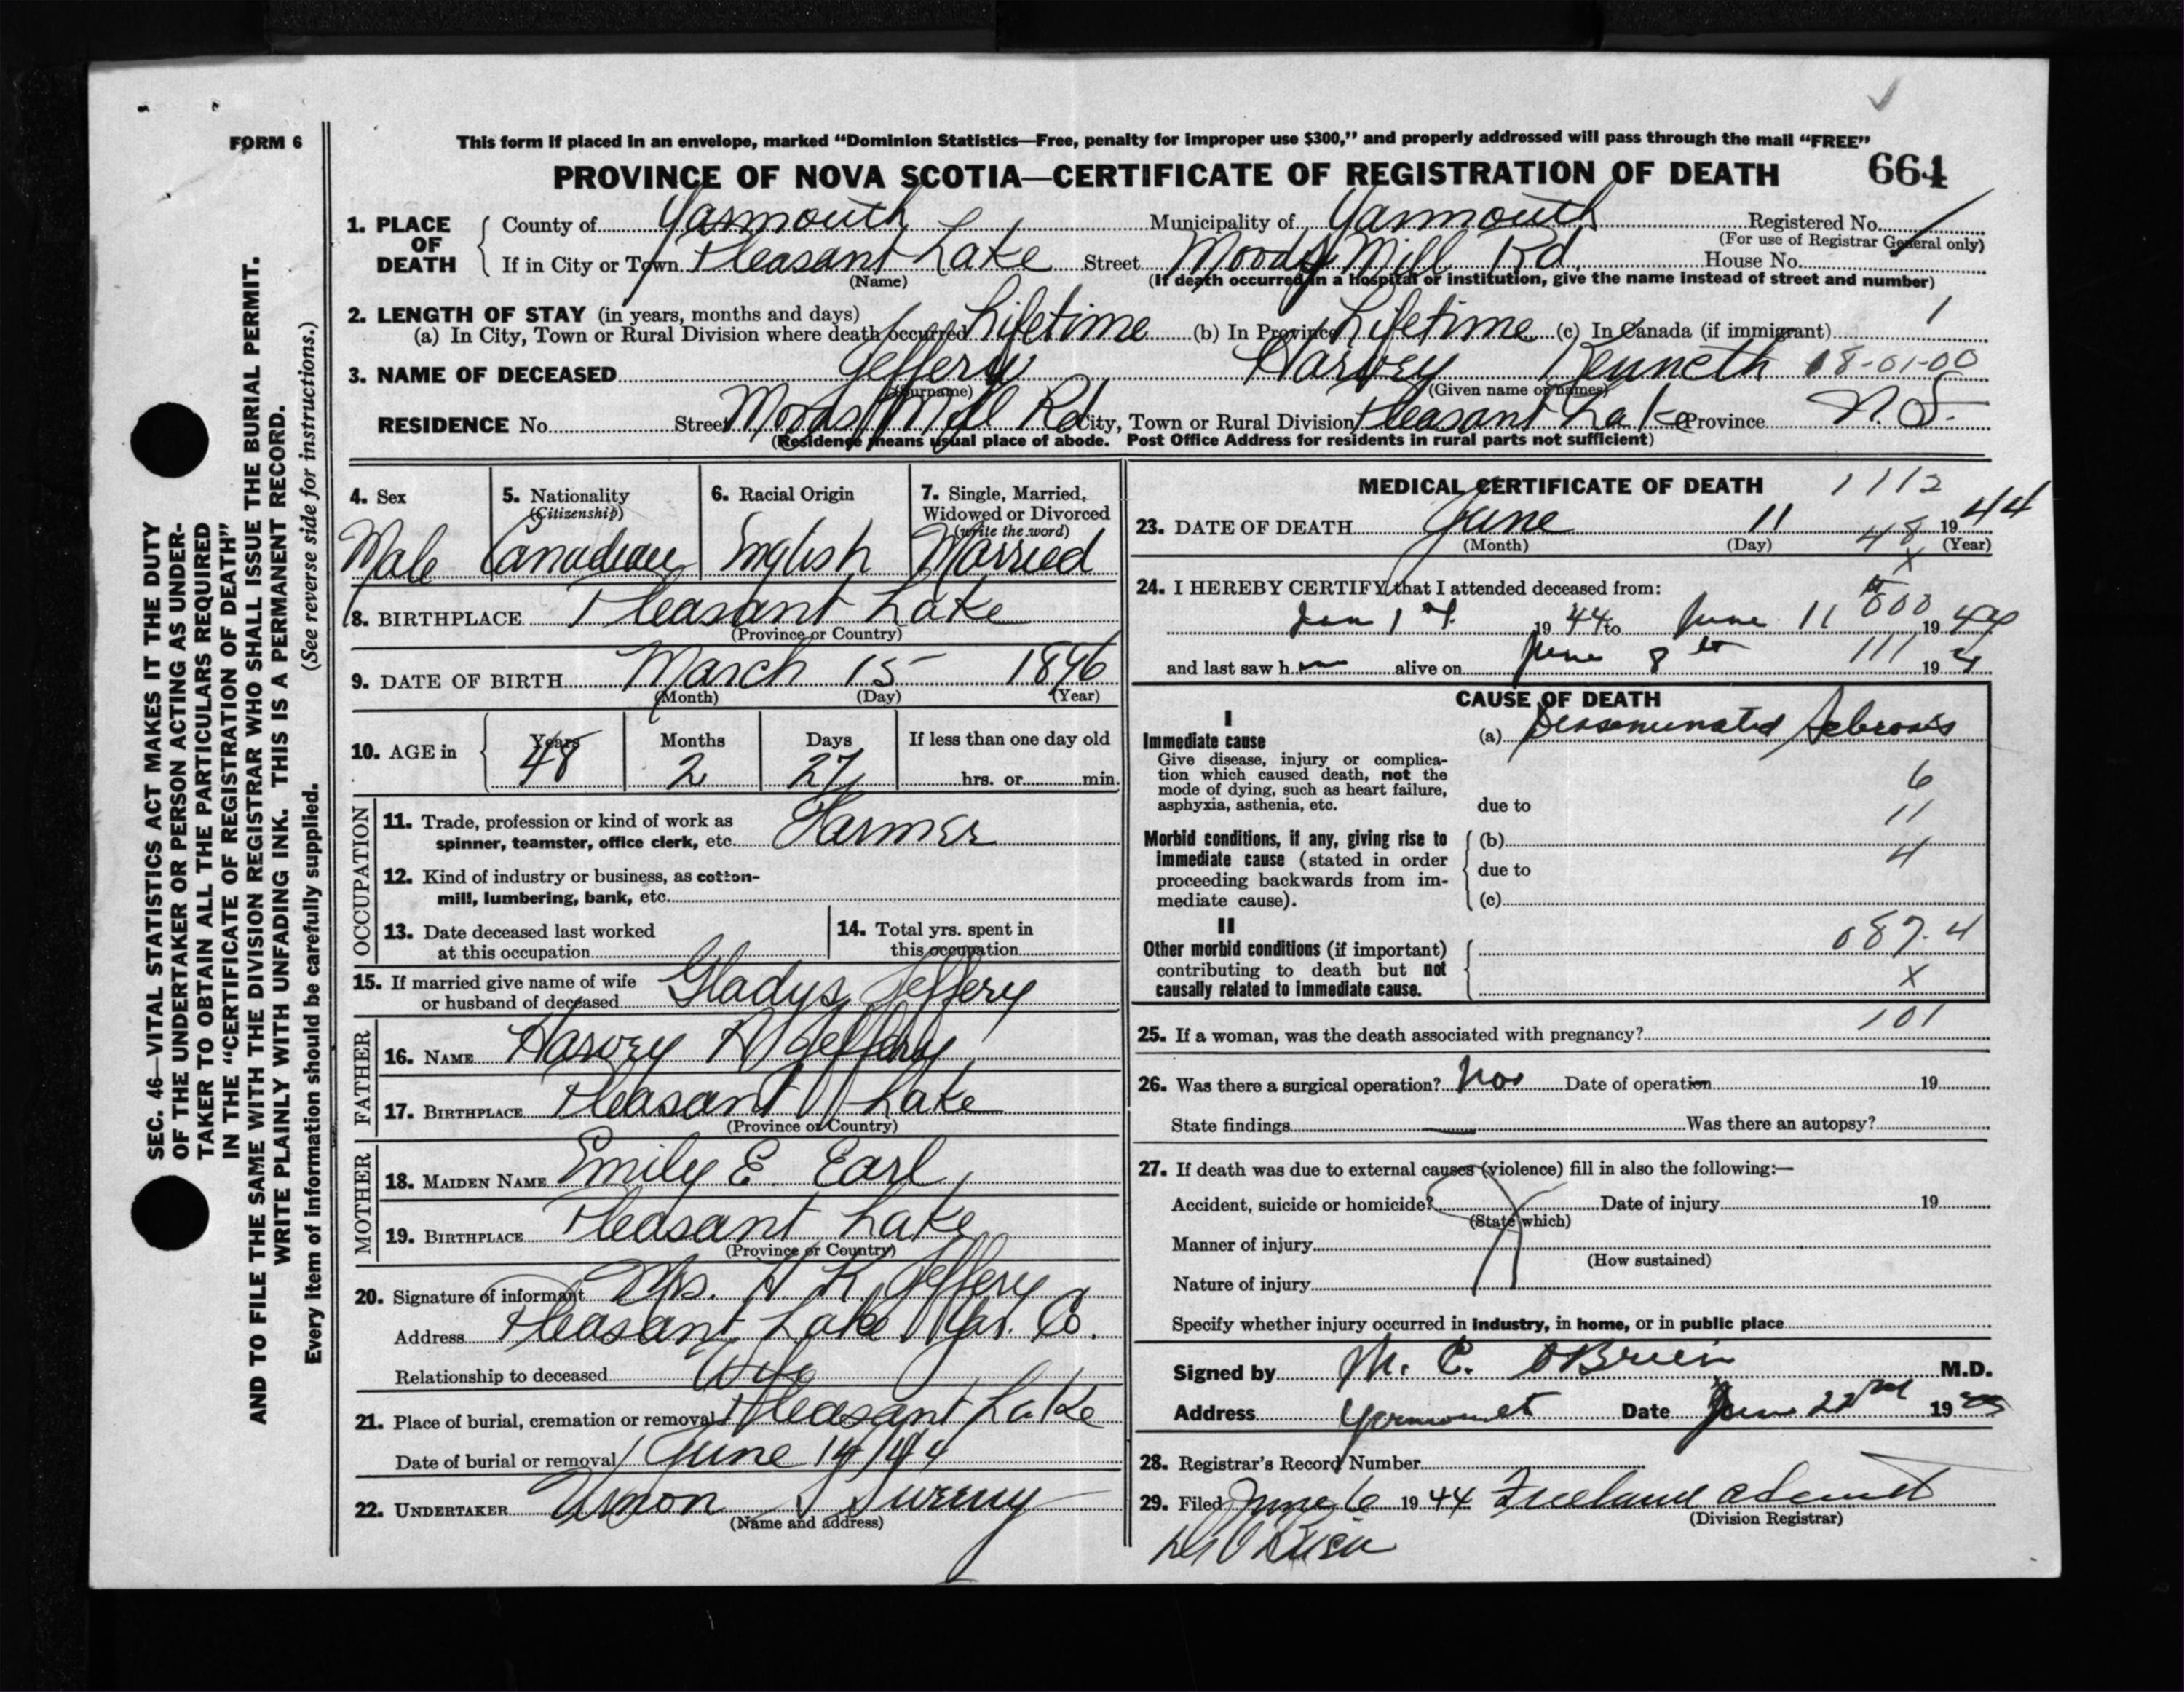 FORM 6
This form if placed in an envelope, marked “Dominion Statistics—Free, penalty for improper use $300,” and properly addressed will pass through the mail “FREE”
PROVINCE OF NOVA SCOTIA—CERTIFICATE OF REGISTRATION OF DEATH 664
SEC. 46—VITAL STATISTICS ACT MAKES IT THE DUTY
OF THE UNDERTAKER OR PERSON ACTING AS UNDER-
TAKER TO OBTAIN ALL THE PARTICULARS REQUIRED
IN THE “CERTIFICATE OF REGISTRATION OF DEATH”
AND TO FILE THE SAME WITH THE DIVISION REGISTRAR WHO SHALL ISSUE THE BURIAL PERMIT.
WRITE PLAINLY WITH UNFADING INK. THIS IS A PERMANENT RECORD.
Every item of information should be carefully supplied. (See reverse side for instructions.)
1. PLACE OF DEATH
County of Yarmouth Municipality of Yarmouth Registered No.
(For use of Registrar General only)
If in City or Town Pleasant Lake Street Moods Mill Rd. House No.
(Name) (If death occurred in a hospital or institution, give the name instead of street and number)
2. LENGTH OF STAY (in years, months and days)
(a) In City, Town or Rural Division where death occurred Lifetime (b) In Province Lifetime (c) In Canada (if immigrant)
3. NAME OF DECEASED Jeffery Harvey Kenneth 18-01-00
(Surname) (Given name or names)
RESIDENCE No. Street Moods Mill Rd City, Town or Rural Division Pleasant Lake Province N.S.
(Residence means usual place of abode. Post Office Address for residents in rural parts not sufficient)
4. Sex 5. Nationality (Citizenship) 6. Racial Origin 7. Single, Married, Widowed or Divorced (write the word)
Male Canadian English Married
8. BIRTHPLACE Pleasant Lake
(Province or Country)
9. DATE OF BIRTH March 15 1896
(Month) (Day) (Year)
10. AGE in Years Months Days If less than one day old
48 2 27 hrs. or min.
OCCUPATION
11. Trade, profession or kind of work as
spinner, teamster, office clerk, etc. Farmer
12. Kind of industry or business, as cotton-
mill, lumbering, bank, etc.
13. Date deceased last worked
at this occupation
14. Total yrs. spent in
this occupation
15. If married give name of wife
or husband of deceased Gladys Jeffery
FATHER
16. NAME Harvey H Jeffery
17. BIRTHPLACE Pleasant Lake
(Province or Country)
MOTHER
18. MAIDEN NAME Emily E. Earl
19. BIRTHPLACE Pleasant Lake
(Province or Country)
20. Signature of informant Mrs. H. K. Jeffery
Address Pleasant Lake Yar. Co.
Relationship to deceased Wife
21. Place of burial, cremation or removal Pleasant Lake
Date of burial or removal June 14/44
22. UNDERTAKER Sweeny
(Name and address)
MEDICAL CERTIFICATE OF DEATH 1112
23. DATE OF DEATH June 11 1944
(Month) (Day) (Year)
48
X
24. I HEREBY CERTIFY that I attended deceased from:
Jan 1st 1944 to June 11 1944
000
and last saw h alive on June 8 th 194
111
CAUSE OF DEATH
I
Immediate cause
Give disease, injury or complica-
tion which caused death, not the
mode of dying, such as heart failure,
asphyxia, asthenia, etc.
(a) Disseminated Sclerosis
6
due to
11
Morbid conditions, if any, giving rise to
immediate cause (stated in order
proceeding backwards from im-
mediate cause).
(b)
4
due to
(c)
II
Other morbid conditions (if important)
contributing to death but not
causally related to immediate cause.
087.4
X
25. If a woman, was the death associated with pregnancy? 101
26. Was there a surgical operation? Date of operation 19
State findings — Was there an autopsy?
27. If death was due to external causes (violence) fill in also the following:—
Accident, suicide or homicide? Date of injury 19
(State which)
Manner of injury
(How sustained)
Nature of injury
Specify whether injury occurred in industry, in home, or in public place
Signed by M. C. O'Brien M.D.
Address Yarmouth Date June 22nd 19
28. Registrar's Record Number
29. Filed June 1944 Freeland
(Division Registrar)